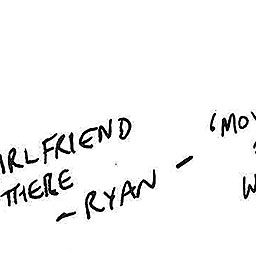 IRLFRIEND
THERE
- RYAN -
'MOV
W